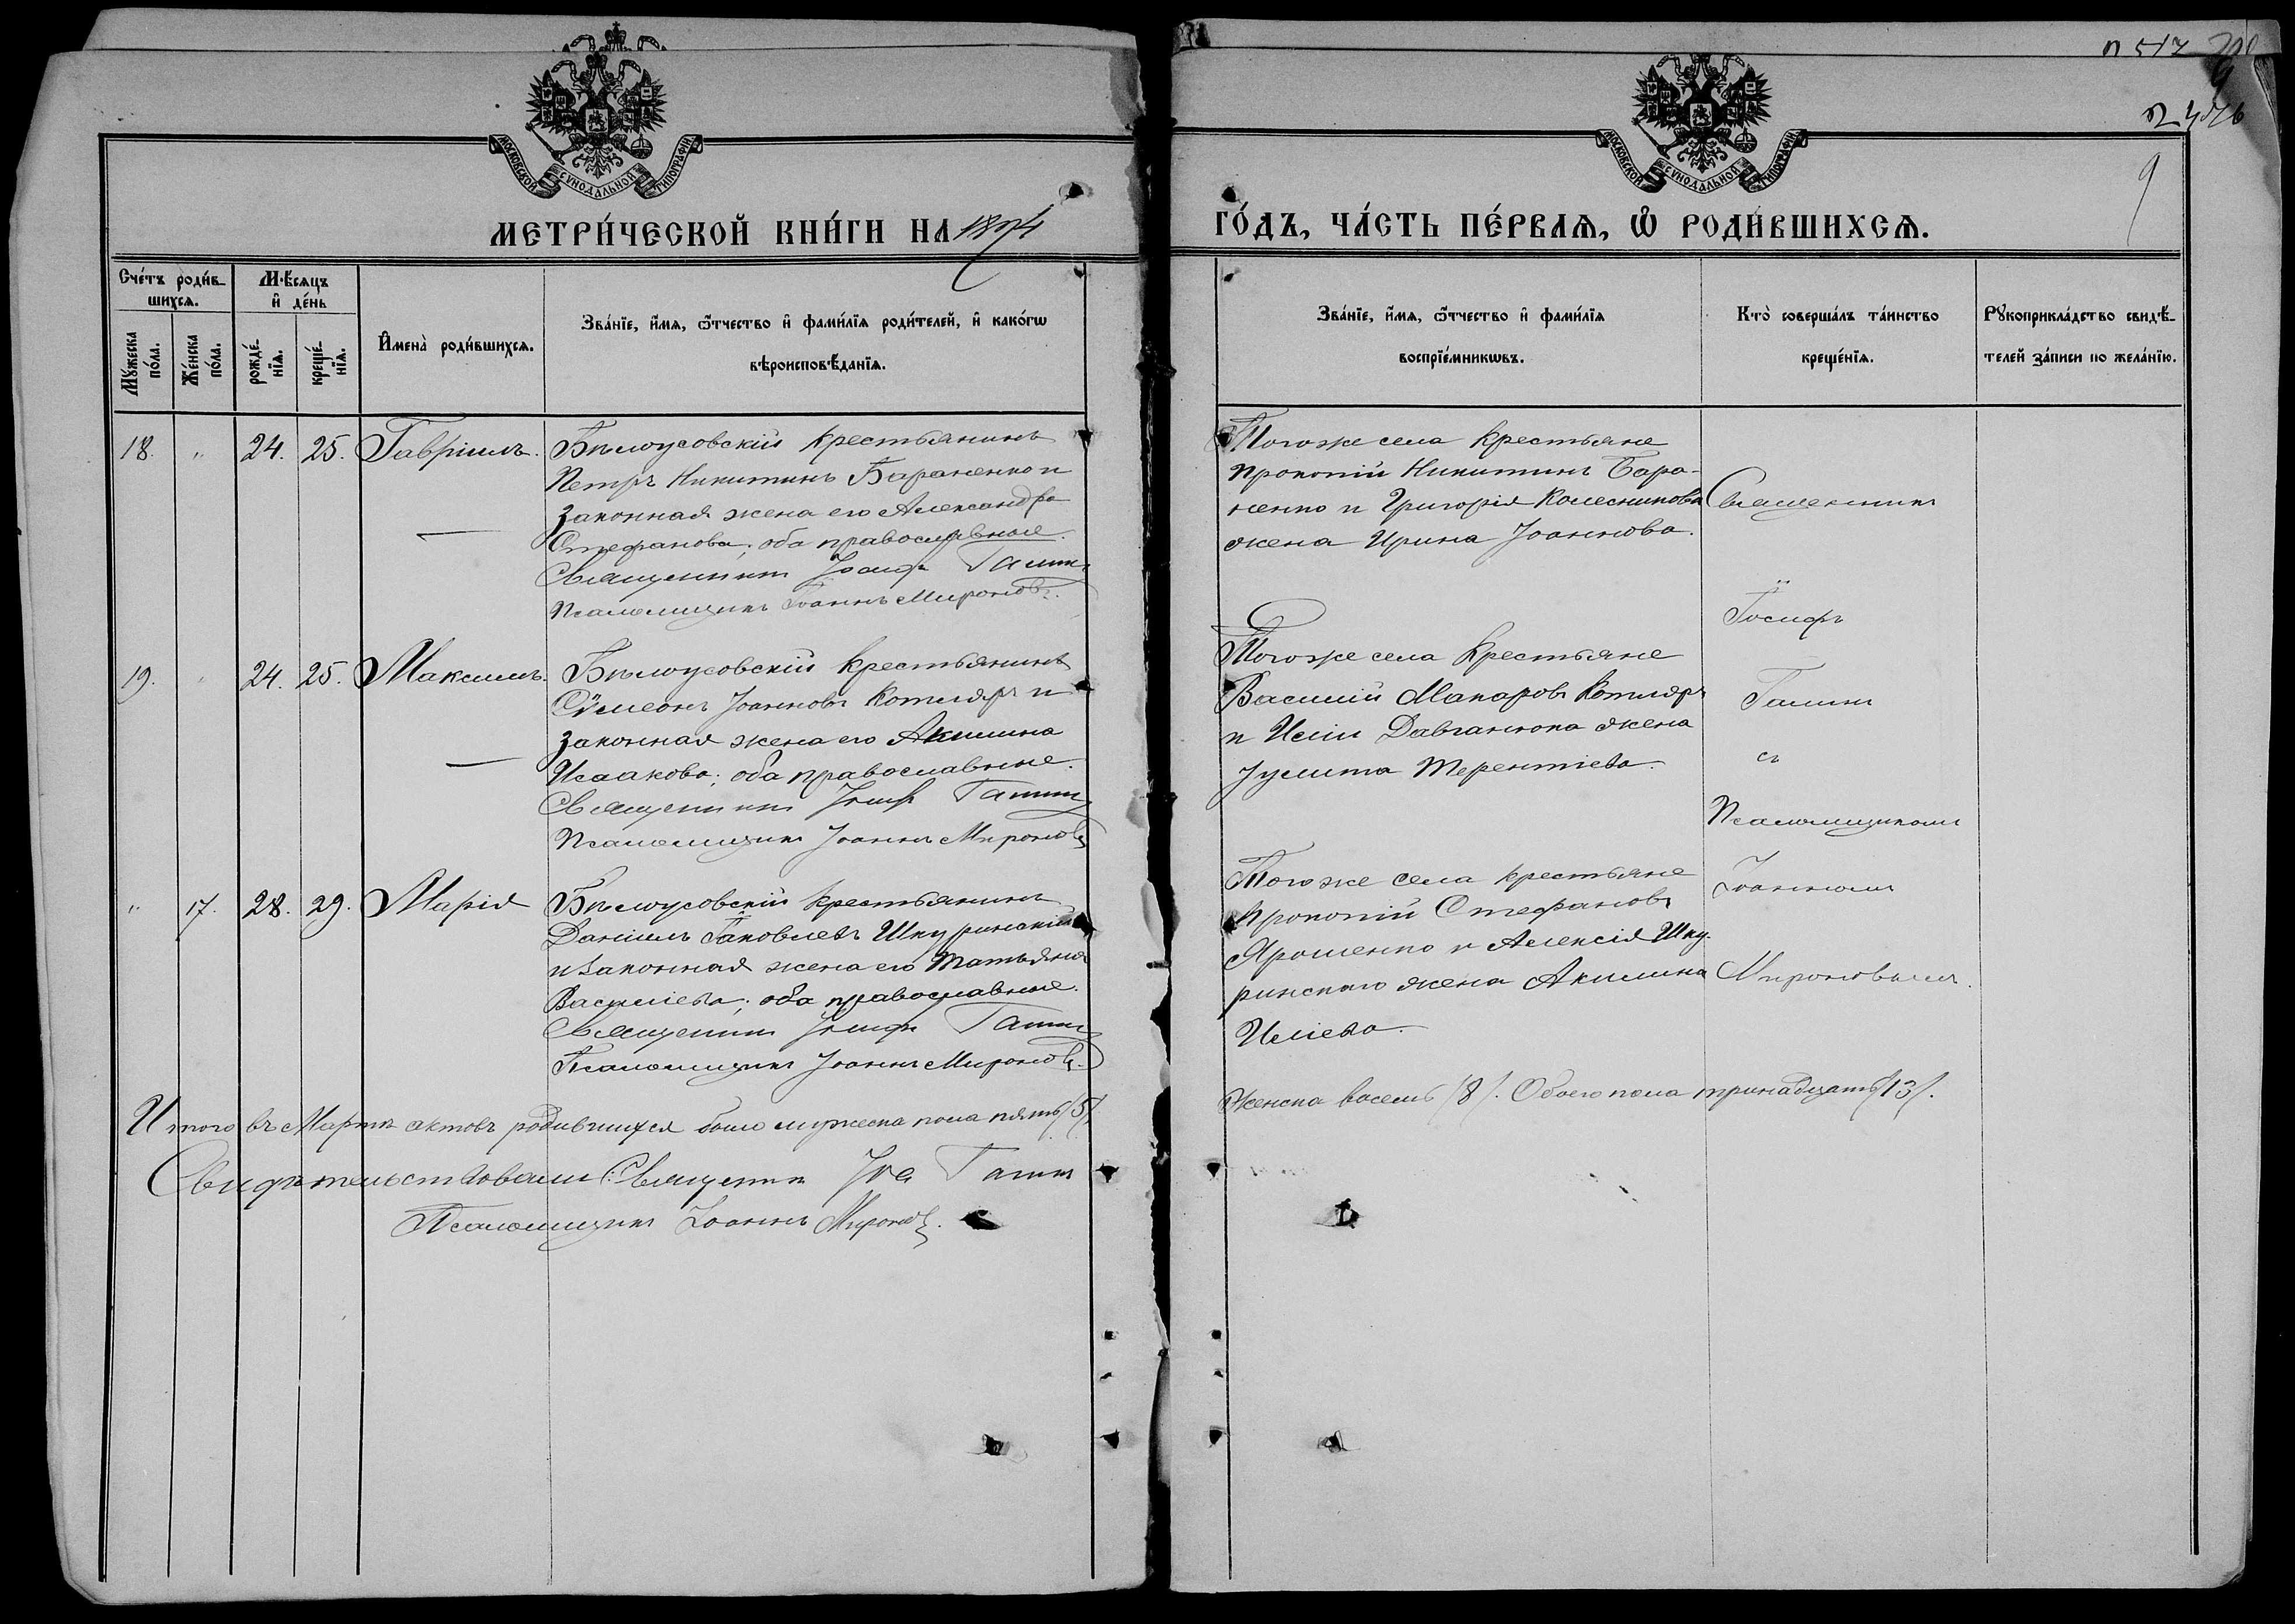 п 517
9
МОСКОВСКОЙ СѴНОДАЛЬНОЙ ТИПОГРАФІИ
МОСКОВСКОЙ СѴНОДАЛЬНОЙ ТИПОГРАФІИ
МЕТРИ́ЧЕСКОЙ КНИ́ГИ НА 1874 ГО́ДЪ, ЧА́СТЬ ПЕ́РВАѦ, Ѡ҆ РОДИ́ВШИХСѦ.
9
Сче́тъ роди́в-
шихсѧ.
Мꙋ́жеска по́ла.
Же́нска по́ла.
М́ѣсѧцъ
и҆ де́нь
рожде́-
нїѧ.
креще́-
нїѧ.
И҆мена̀ роди́вшихсѧ.
Зва́нїе, и҆́мѧ, ѻ҆́тчество и҆ фами́лїѧ роди́телей, и҆ како́гѡ
вѣроисповѣ́данїѧ.
Зва́нїе, и҆́мѧ, ѻ҆́тчество и҆ фами́лїѧ
воспрїе́мникѡвъ.
Кто̀ соверша́лъ та́инство
креще́нїѧ.
Рꙋкоприкла́дство свидѣ́-
телей за́писи по жела́нїю.
18. " 24. 25. Гавріилъ.
Бѣлоусовскій крестьянинъ
Петръ Никитинъ Бараненко и
законная жена его Александра
Стефанова; оба православные.
Священникъ Іосифъ Галинъ
Псаломщикъ Іоаннъ Мироновъ.
Тогоже села крестьяне
Прокопій Никитинъ Бара-
ненко и Григорія Колесникова
жена Ирина Іоаннова.
19. " 24. 25. Максимъ.
Бѣлоусовскій крестьянинъ
Сѵмеонъ Іоанновъ Котляръ и
законная жена его Акилина
Исаакова; оба православные.
Священникъ Іосифъ Галинъ
Псаломщикъ Іоаннъ Мироновъ
Тогоже села Крестьяне
Василій Макаровъ Котляръ
и Иліи Давганюка жена
Іулита Терентіева.
" 17. 28. 29. Марія
Бѣлоусовскій крестьянинъ
Даніилъ Іаковлевъ Шкуринскій
и законная жена его Татьяна
Василіева; оба православные.
Священникъ Іосифъ Галинъ
Псаломщикъ Іоаннъ Мироновъ.
Тогоже села крестьяне
Прокопій Стефановъ
Ярошенко и Алексія Шку-
ринскаго жена Акилина
Иліева.
Священникъ
Іосифъ
Галинъ
съ
Псаломщикомъ
Іоанномъ
Мироновымъ.
Итого въ Мартѣ актовъ родившихся было мужеска пола пять /5/.
Женска восемь /8/. Обоего пола тринадцать /13/.
Свидѣтельствовали: Священникъ Іос Галинъ
Псаломщикъ Іоаннъ Мироновъ.